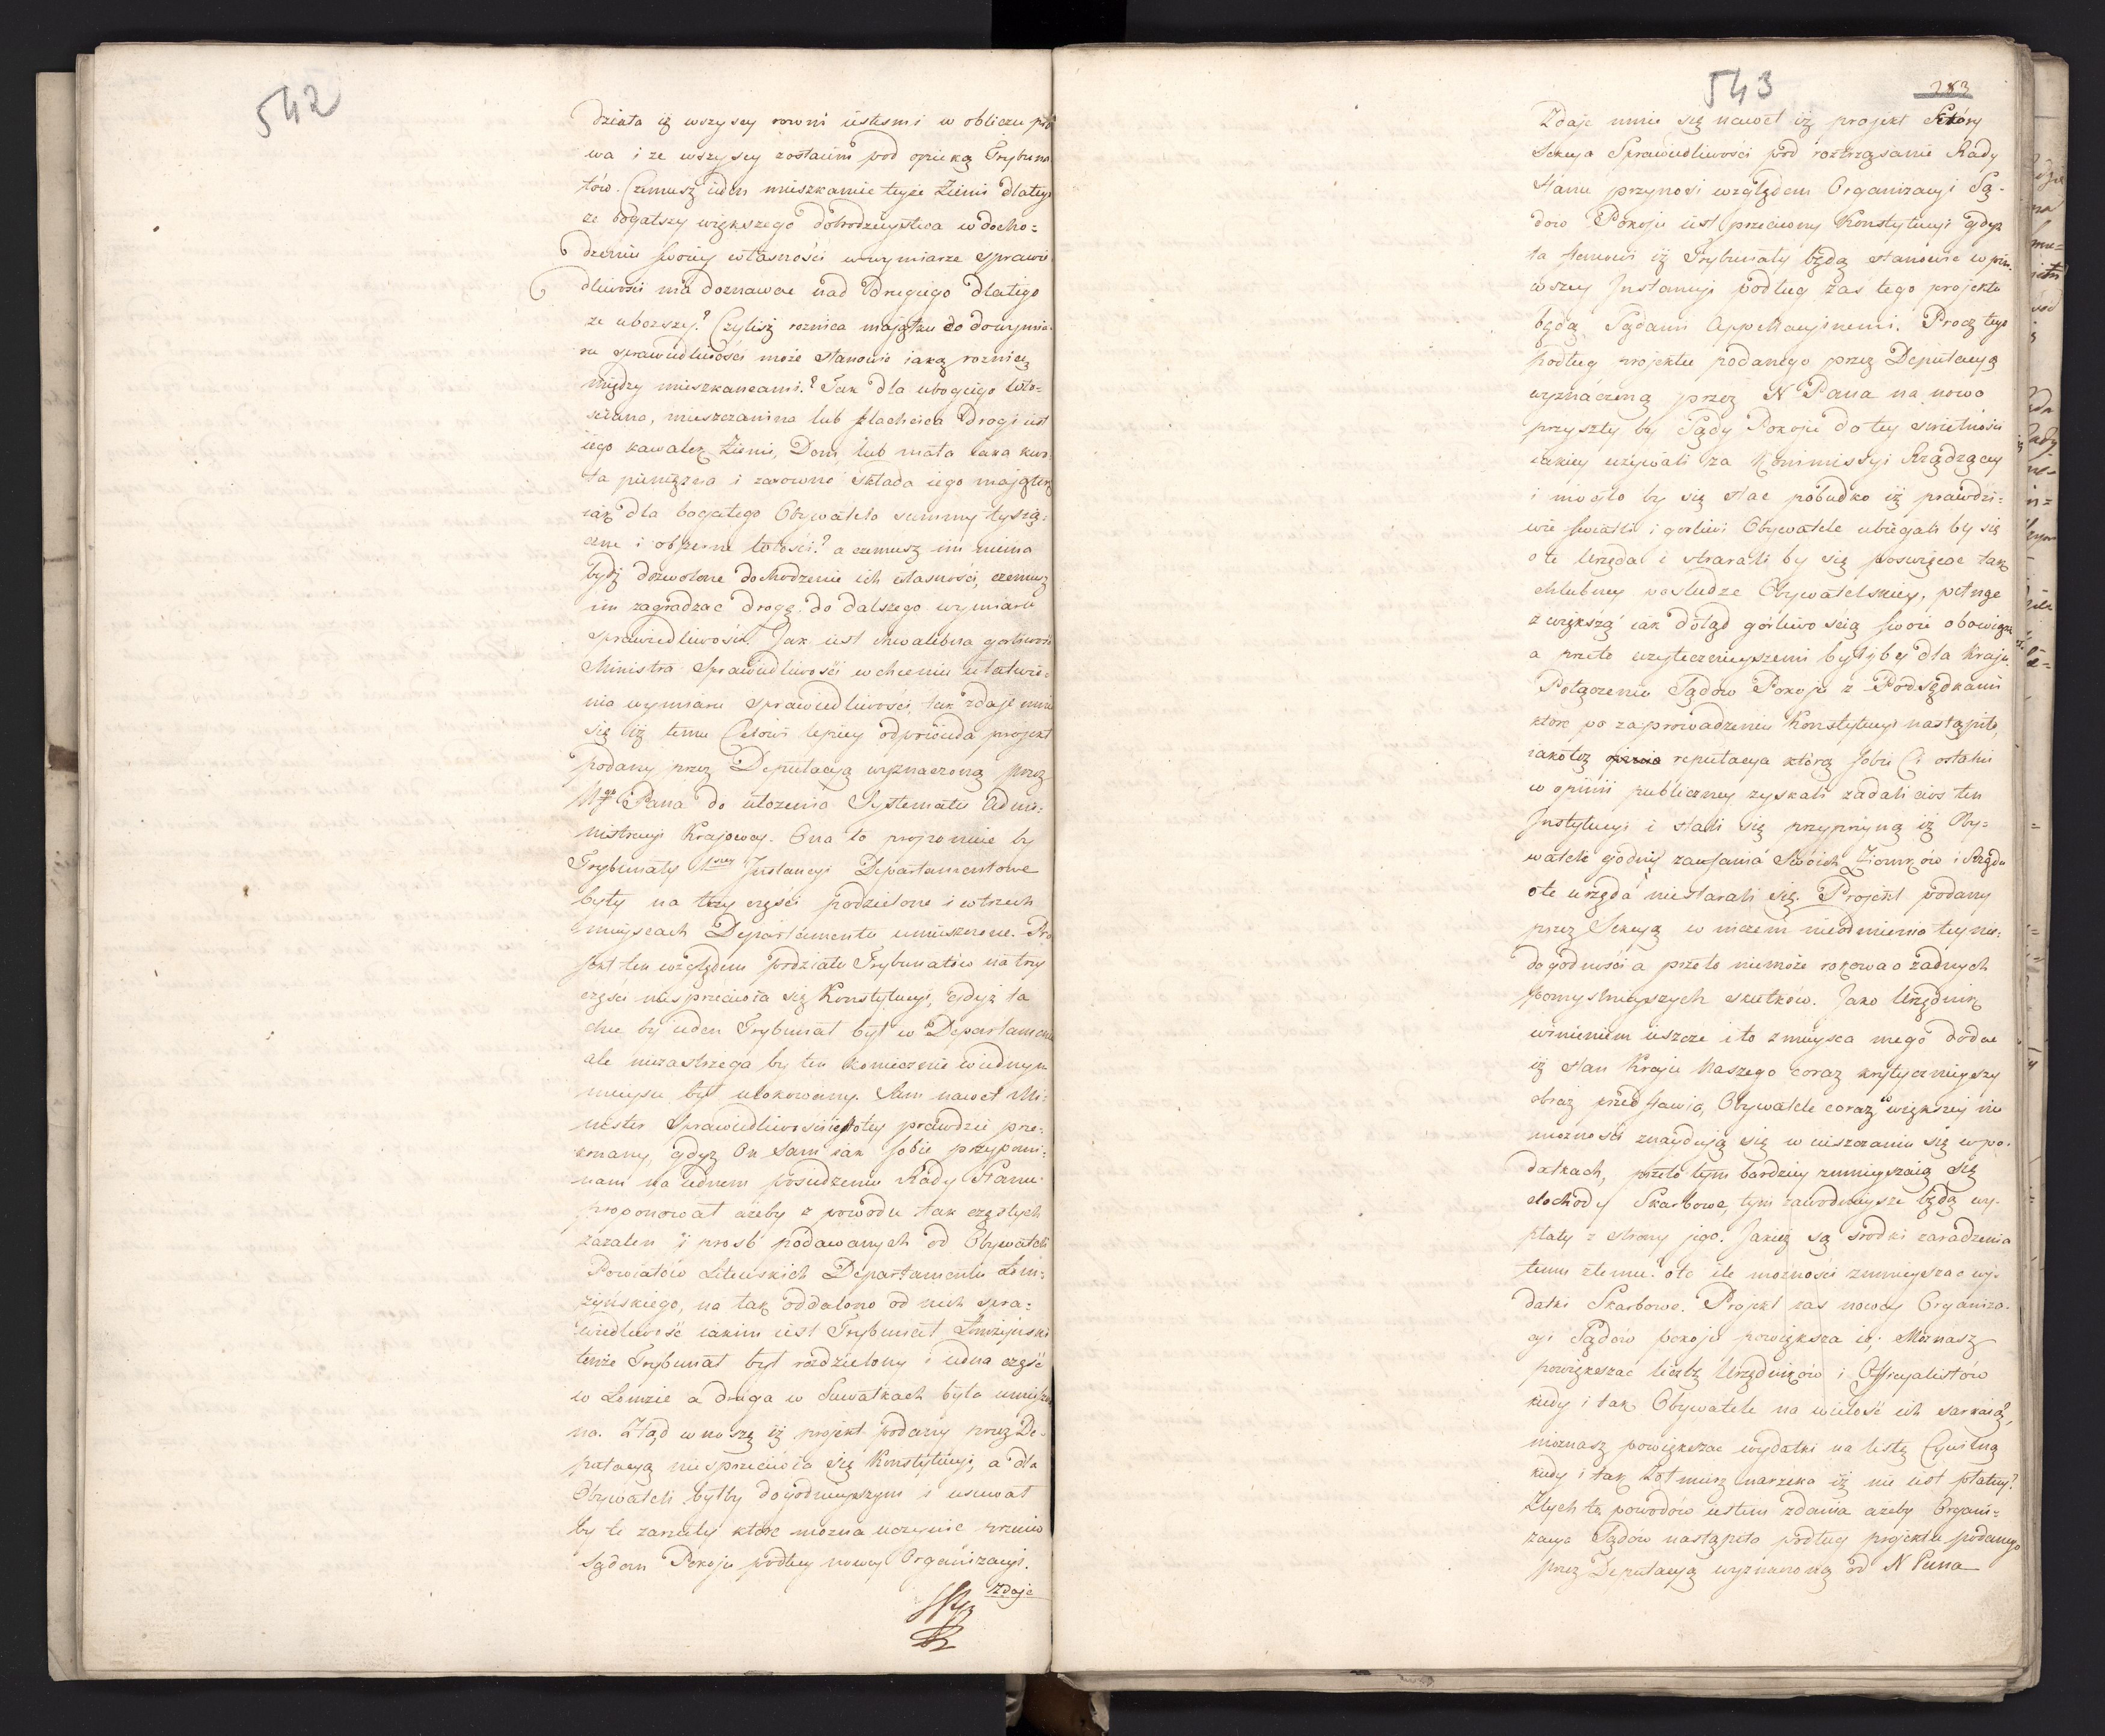 542
działa iż wszyscy rowni iestesmi w obliczu pra
wa i ze wszyscy zostaiem pod opieką Trybuna
łów. Czemusz ieden mieszkaniec teyże Ziemi dlatego
ze bogatszy większego dobrodzieystwa w docho=
dzeniu swoiey własności w wymiarze sprawie
dliwości ma doznawac nad drugiego dlatego
ze uboższy? Czylisz roznica maiątku do dowymia-
ru sprawiedliwości może stanowic iaką roznicę
między mieszkancami? Jak dla ubogiego wło=
scianina, mieszczanina lub szlachcica drogi iest
iego kawałek Ziemi, Dom, lub mała iaka kwo
ta pieniężna i zarowno składa iego maiątek
iak dla bogatego Obywatela summy tysią=
czne i obszerne włości? a czemusz im niema
bydź dozwolone dochodzenie ich własności, czemusz
im zagradzac drogę do dalszego wymiaru
sprawiedliwości? Jak iest chwalebna gorliwość
Ministra Sprawiedliwości w chceniu ułatwie=
nia wymiaru sprawiedliwości, tak zdaje mnie
się iż temu Celowi lepiey odpowiada projekt
podany przez Deputacyą wyznaczoną przez
Nygo Pana do ułożenia Systematu Admi=
nistracyi Krajowey. Ona to projzomnie by
Trybunały 1szey Instancyi Departamentowe
były na trzy części podzielone i w trzech
mieyscach Departamentu umieszczone. Pro
jekt ten względem podziału Trybunałów na trzy
części niesprzeciwia się Konstytucyi, gdyż ta
chce by ieden Trybunał był w Departamencie
ale niezastrzega by ten koniecznie w iednym
mieyscu był ulokowany. Sam nawet Mi=
nister Sprawiedliwości iest o tey prawdzie prze=
konany, gdyż On sam iak sobie przypomi=
nam na iednem posiedzeniu Rady Stanu
proponował ażeby z powodu tak częstych
zażaleń i prosb podawanych od Obywateli
Powiatów Litewskich Departamentu Łom=
żyńskiego, na tak oddaloną od nich spra=
wiedliwość iakim iest Trybunał Łomżyński
tenże Trybunał był rozdzielony i iedna część
w Łomzie a druga w Suwałkach była umieszczo
na. Ztąd wnoszę iż projekt podany przez De=
putacyą niesprzeciwia się Konstytucyi, a dla
Obywateli byłby dogodnieyszym i usuwał
by te zarzuty które można uczynic przeciw
Sądom Pokoju podług nowey Organizacyi.
Zdaje
543
283
Zdaje mnie się nawet iż projekt który
Sekcya Sprawiedliwości pod roztrząsanie Rady
Stanu przynosi względem Organizacyi Są=
dow Pokoju iest przeciwny Konstytucyi gdyż
ta stanowi iż Trybunały będą stanowic w pier=
wszey Instancyi podług zas tego projektu
będą Sądami Appellacyinemi. Procz tego
podług projektu podanego przez Deputacyą
wyznaczoną przez N Pana na nowo
przyszły by Sądy Pokoju do tey swietności
iakiey używali za Kommissyi Rządzącey
i mogło by się stac pobudką iż prawdzi=
wie swiatli i gorliwi Obywatele ubiegali by się
o te Urzęda i starali by się poswięcac tak
chlubney posłudze Obywatelskiey, pełniąc
z większą iak dotąd gorliwością swoie obowiązki
a przeto użytecznieyszemi byliby dla Kraju
Połączenie Sądow Pokoju z Podsędkami
ktore po zaprowadzeniu Konstytucyi nastąpiło,
iakotez reputacya którą sobie Ci ostatni
w opinii publiczney zyskali zadali cios tey
Instytucyi i stali się przyczyną iż Oby=
watele godni zaufania Swoich Ziomków i Rządu
o te urzęda niestarali się. Projekt podany
przez Sekcyą w niczem nieodmienia tey nie=
dogodności a przeto niemoże rokować żadnych
pomyslnieyszych skutków. Jako Urzędnik
winienem ieszcze i to z mieysca mego dodac
iż stan Kraju Naszego coraz krytycznieyszy
obraz przedstawia, Obywatele coraz w większey nie
możności znayduią się w uiszczaniu się w po=
datkach, przeto tym bardziey zmnieyszaią się
dochody Skarbowe, tym zawodnieysze będą wy=
płaty z strony jego. Jakież są srodki zaradzenia
temu złemu? oto ile możności zmnieyszac wy=
datki Skarbowe. Projekt zas nowey Organiza=
cyi Sądów pokoju powiększa ie; Możnasz
powiększać liczbę Urzędników i Officyalistów
kiedy i tak Obywatele na wielość ich sarkaią?,
możnasz powiększac wydatki na listę Cywilną
kiedy i tak Zołnierz narzeka iż nie iest płatny?
Z tych to powodów iestem zdania ażeby Organi=
zacya Sądów nastąpiła podług projektu podanego
przez Deputacyą wyznaczoną od N Pana